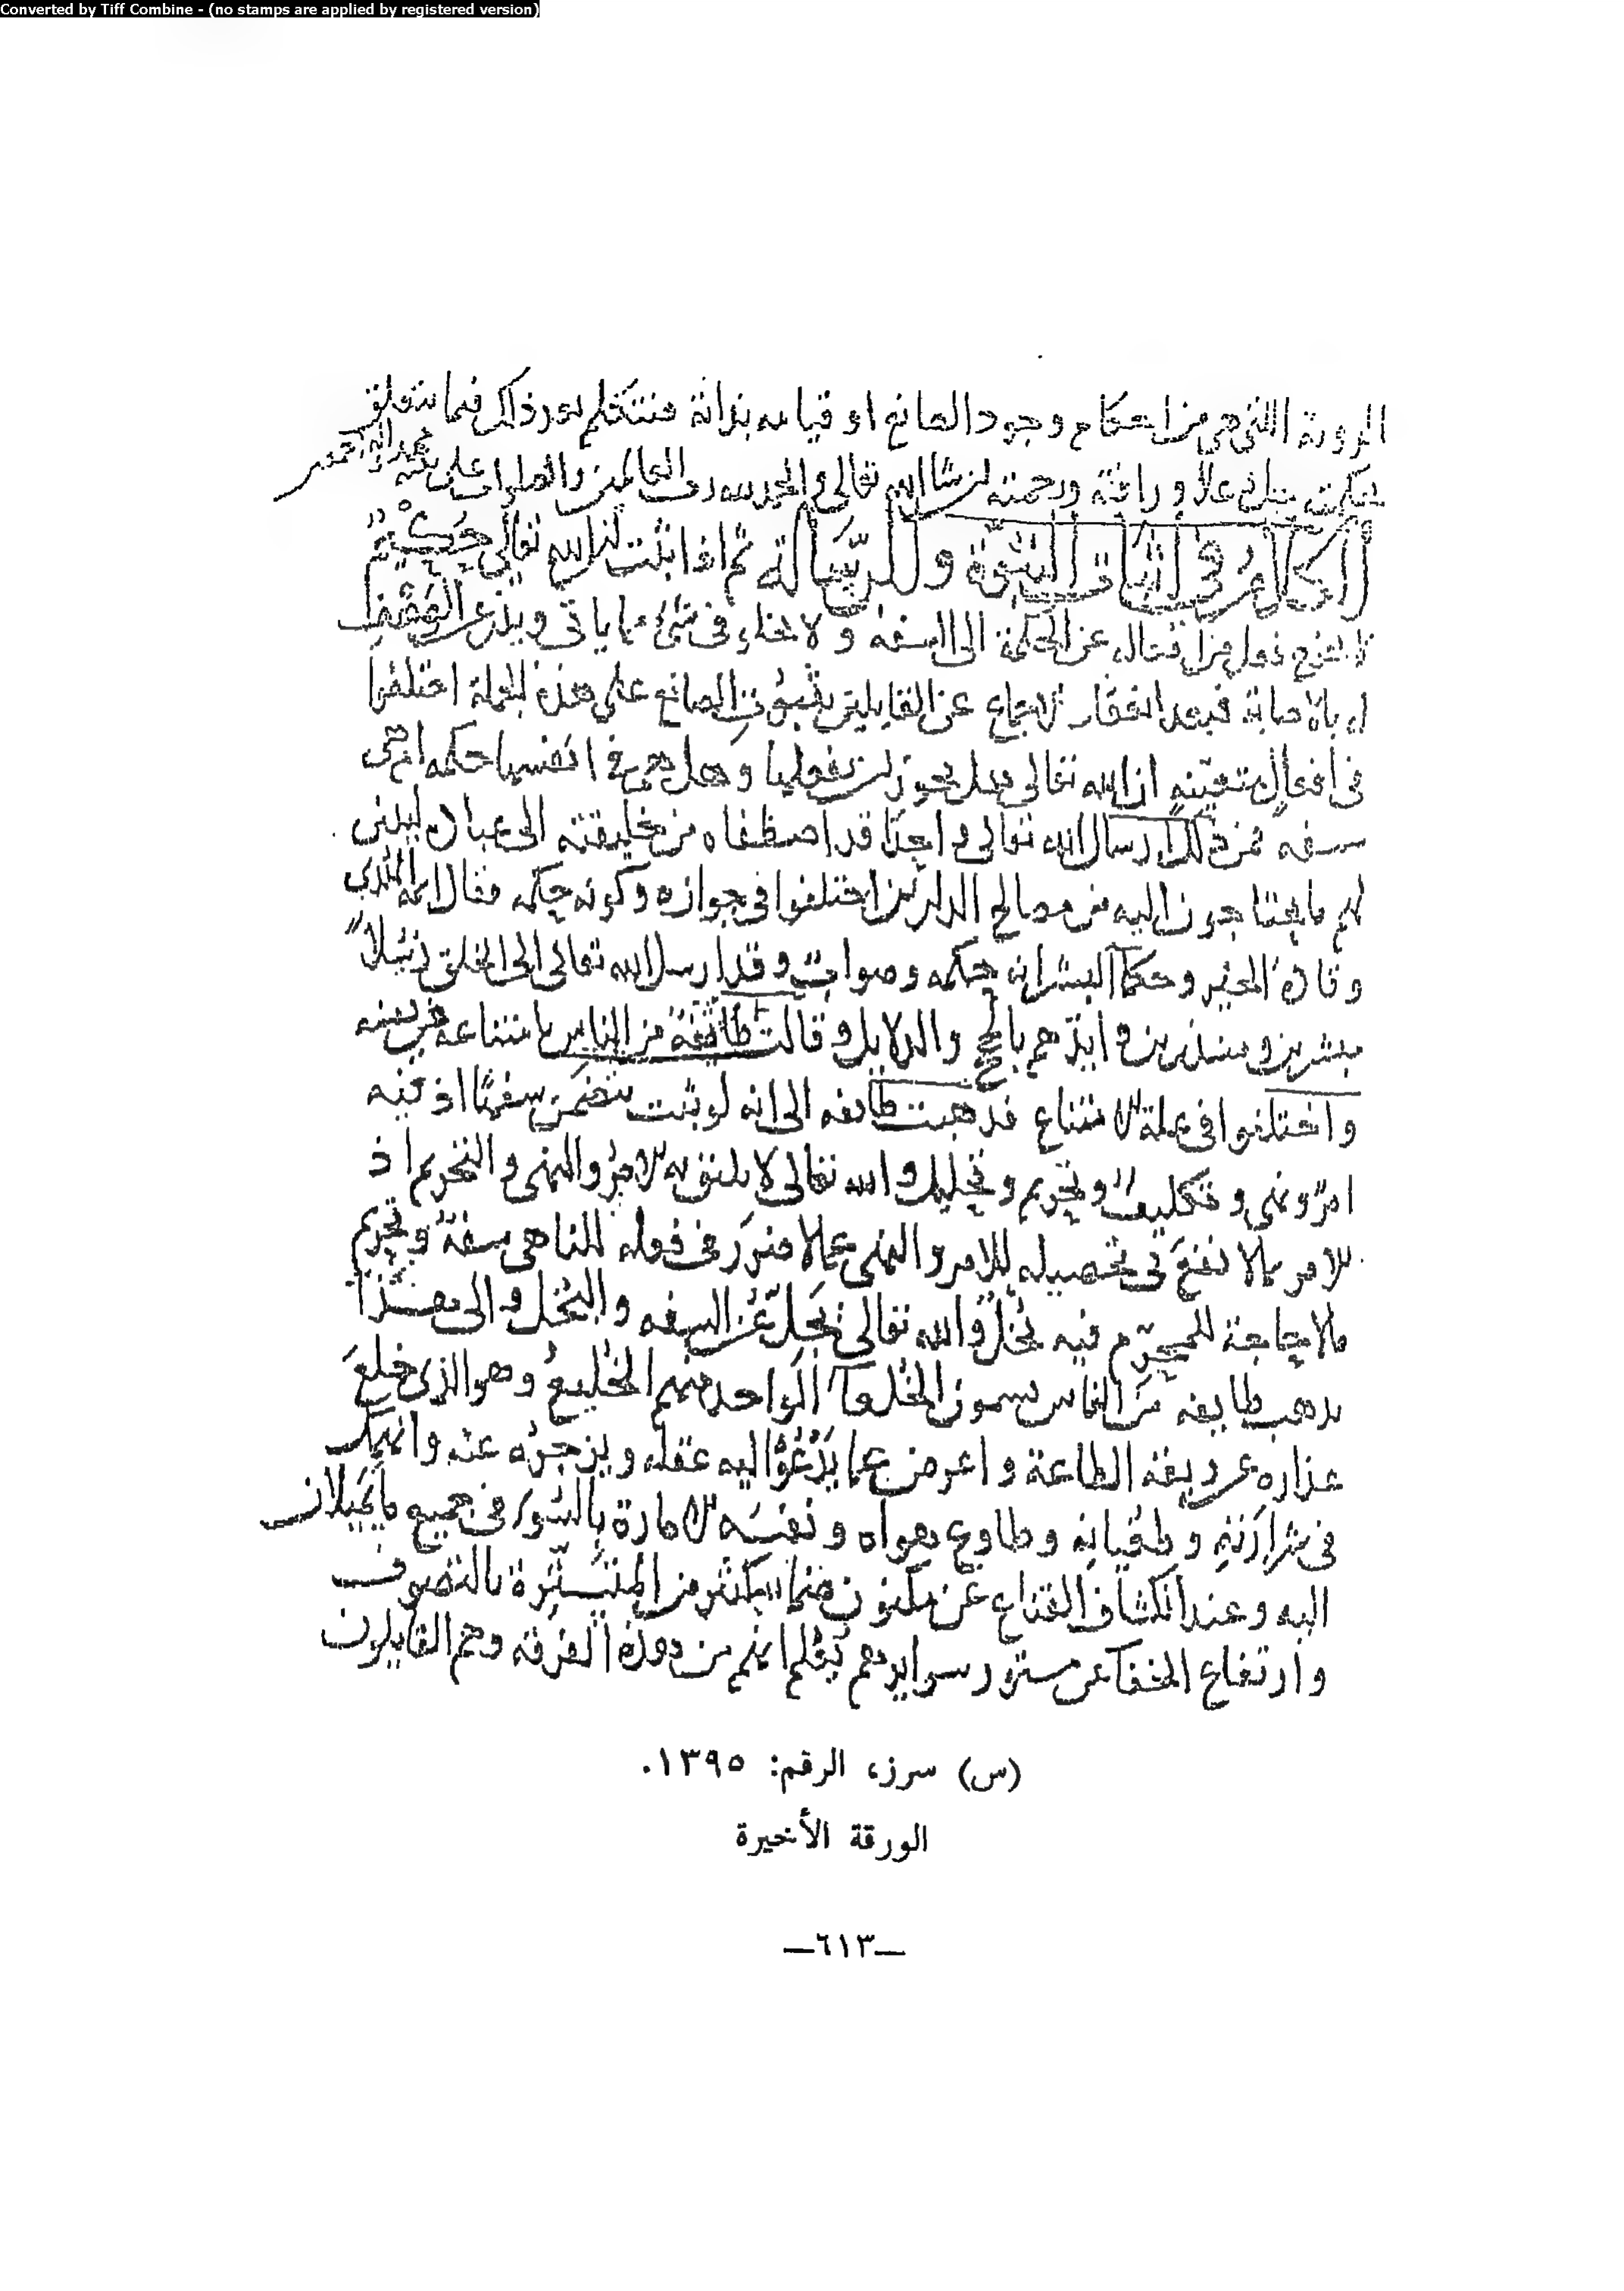 Converted by Tiff Combine - (no stamps are applied by registered version)
الروية التي هي من احكام وجود الصانع او قيامه بذاته فنتكلم بعد ذلك فيما يتعلق
بحكمته جل وعلا ورافته ورحمته ان شا الله تعالى والحمد لله رب العالمين والصلوات على محمد واله اجمعين
الكلام في اثبات النبوة والرسالة ثم اذا ثبت ان الله تعالى حكيم
لا يخرج فعل من افعاله عن الحكمة الى السفه ولا في شئ مما ياتي ويذر عن
الاصابة فبعد انعقاد الاجماع عن القايلين بثبوت الصانع على هذه الجملة اختلفوا
في افعال متعينه ان الله تعالى هل يجوز ان يفعلها وهل هي في انفسها حكمه ام هي
سفه فمن ذلك ارسال الله تعالى واحدا قد اصطفاه من خليقته الى عباده ليبين
لهم ما يحتاجون اليه من مصالح الدارين اختلفوا في جوازه وكونه حكمه فقال ايمة الهدي
وقادة الخير وحكما البشر انه حكمه وصواب وقد ارسل الله تعالى الى الخلق رسلا
مبشرين ومنذرين وايدهم بالحجج والدلايل وقالت طائفة من الناس بامتناعه
واختلفوا في علة الامتناع فذهبت طايفه الى انه لو ثبت تضمن سفها اذ فيه
امر ونهي وتكليف وتحريم وتحليل والله تعالى لا يليق به الامر والنهي والتحريم اذ
الامر بما لا نفع في تحصيله للامر والنهي عما لا ضرر في فعله للناهي سفه وتحريم
ما لا حاجة للمحرم فيه بخل والله تعالى يجل عن السفه والبخل والى هذا
يذهب طايفه من الناس يسمون الخلعا الواحد منهم الخليع وهو الذي خلع
عذاره عن ربقة الطاعة واعرض عما يدعوا اليه عقله ويزجره عنه وانهمك
في شرارته وطغيانه وطاوع هواه ونفسه الامارة بالسوء في جميع ما يميلان
اليه وعند انكشاف القناع عن مكنون ضماير كثير من المتسترة بالتصوف
وارتفاع الخفا عن مستور سرايرهم يعلم انهم من هذه الفرقة وهم القايلون
(س) سرز، الرقم: ١٣٩٥.
الورقة الأخيرة
—٦١٣—